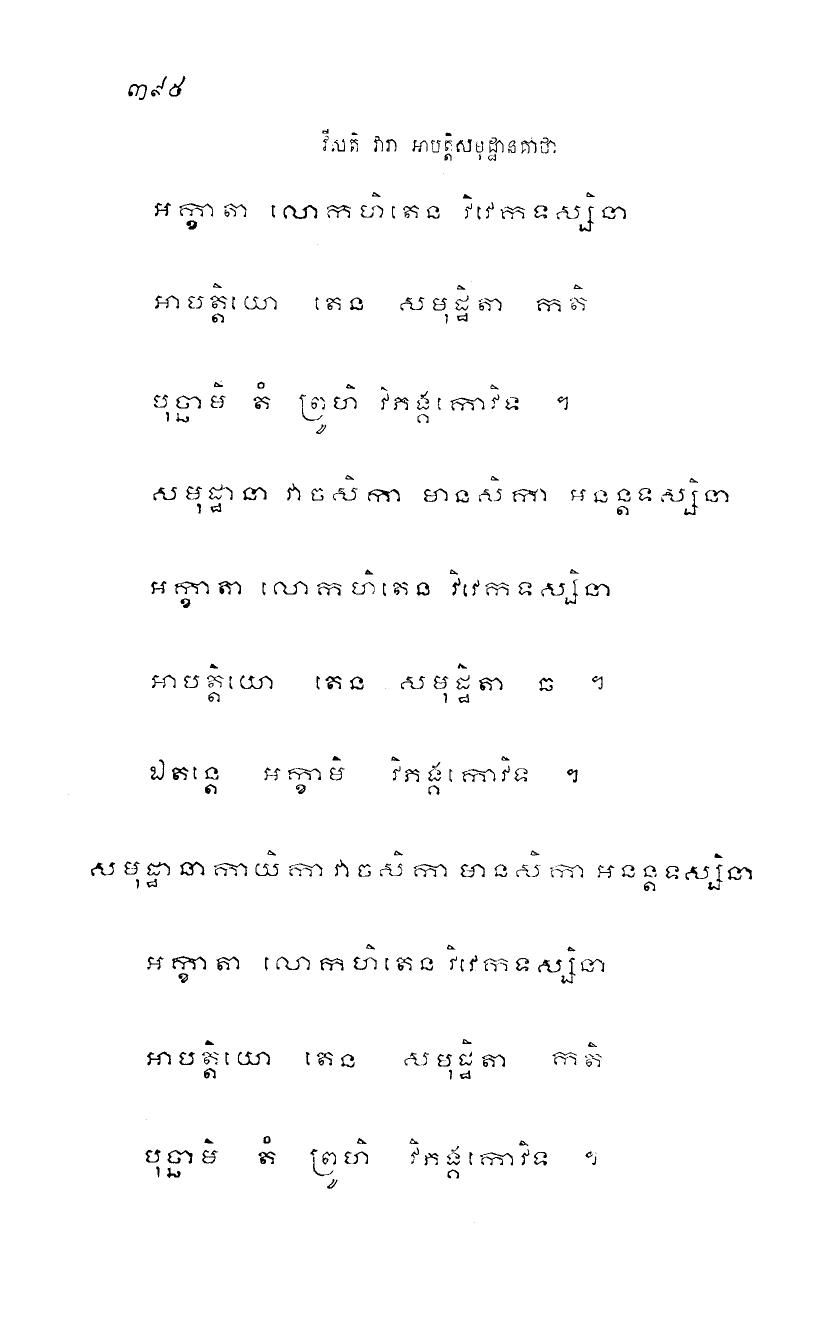 ៣៩៥
វីសតិ វារា អាបត្តិសមុដ្ឋានគាថា
អក្ខាតា លោកហិតេន វិវេកទស្សិនា
អាបត្តិយោ តេន សមុដ្ឋិតា កតិ
បុច្ឆាមិ តំ ព្រូហិ វិភង្គកោវិទ ។
សមុដ្ឋានា វាចសិកា មានសិកា អនន្តទស្សិនា
អក្ខាតា លោកហិតេន វិវេកទស្សិនា
អាបត្តិយោ តេន សមុដ្ឋិតា ឆ ។
ឯតន្តេ អក្ខាមិ វិភង្គកោវិទ ។
សមុដ្ឋានា កាយិកា វាចសិកា មានសិកា អនន្តទស្សិនា
អក្ខាតា លោកហិតេន វិវេកទស្សិនា
អាបត្តិយោ តេន សមុដ្ឋិតា កតិ
បុច្ឆាមិ តំ ព្រូហិ វិភង្គកោវិទ ។